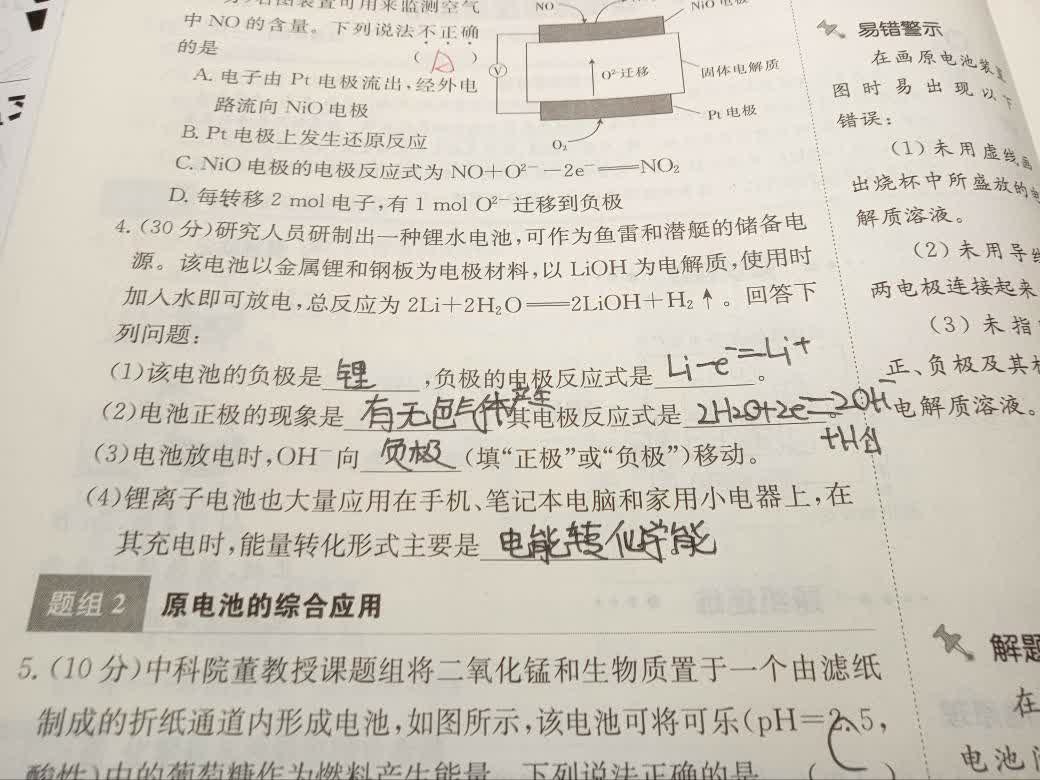 右图装置可用来监测空气
中NO的含量。下列说法不正确
的是 ( )
A. 电子由Pt电极流出,经外电
路流向NiO电极
B. Pt电极上发生还原反应
C. NiO电极的电极反应式为NO+O²⁻-2e⁻══NO₂
D. 每转移2 mol电子,有1 mol O²⁻迁移到负极
NO
NiO电极
V
O²⁻迁移
固体电解质
Pt电极
O₂
4. (30分)研究人员研制出一种锂水电池,可作为鱼雷和潜艇的储备电
源。该电池以金属锂和钢板为电极材料,以LiOH为电解质,使用时
加入水即可放电,总反应为2Li+2H₂O══2LiOH+H₂↑。回答下
列问题:
(1)该电池的负极是 锂 ,负极的电极反应式是 Li-e⁻=Li⁺ 。
(2)电池正极的现象是 有无色气体产生 其电极反应式是 2H2O+2e⁻=2OH⁻
+H₂↑
(3)电池放电时,OH⁻向 负极 (填“正极”或“负极”)移动。
(4)锂离子电池也大量应用在手机、笔记本电脑和家用小电器上,在
其充电时,能量转化形式主要是 电能转化学能
题组2 原电池的综合应用
5. (10分)中科院董教授课题组将二氧化锰和生物质置于一个由滤纸
制成的折纸通道内形成电池,如图所示,该电池可将可乐(pH=2.5,
酸性)中的葡萄糖作为燃料产生能量。下列说法正确的是 ( )
易错警示
在画原电池装置
图时易出现以下
错误:
(1)未用虚线画
出烧杯中所盛放的电
解质溶液。
(2)未用导线
两电极连接起来
(3)未指
正、负极及其
电解质溶液。
解题
在
电池